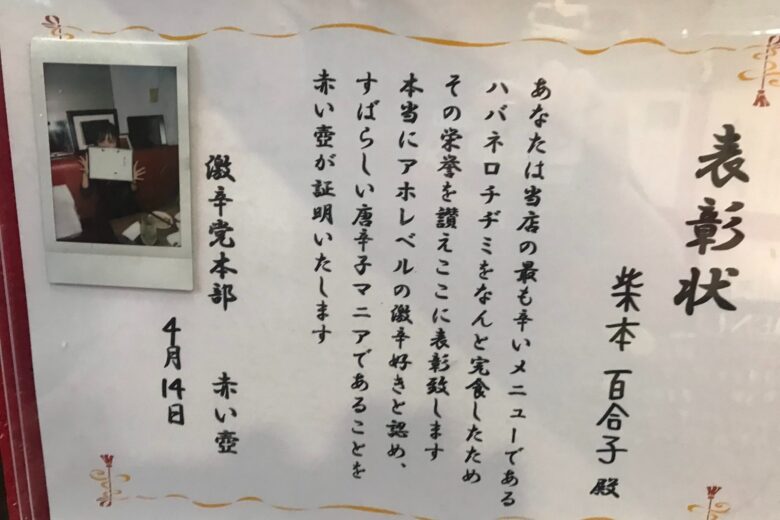 表彰状
柴本 百合子 殿
あなたは当店の最も辛いメニューである
ハバネロチヂミをなんと完食したため
その栄誉を讃えここに表彰致します
本当にアホレベルの激辛好きと認め、
すばらしい唐辛子マニアであることを
赤い壺が証明いたします
激辛党本部 赤い壺
4月14日